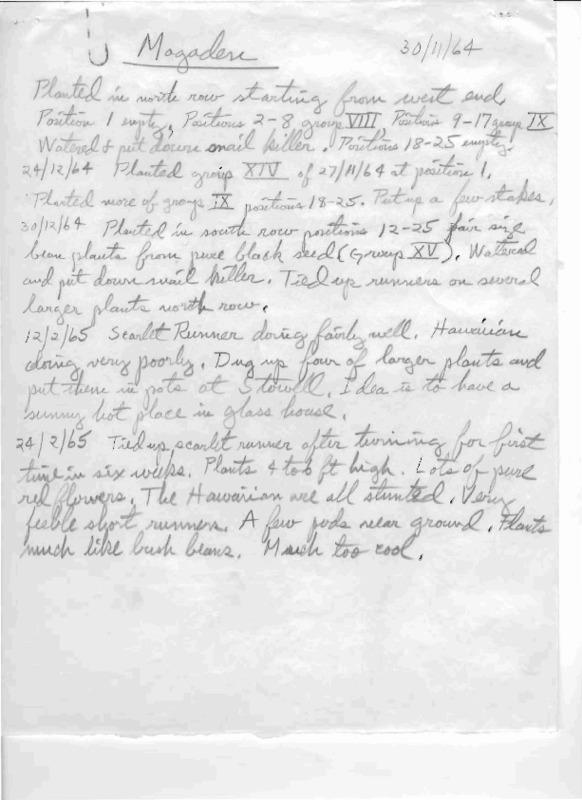 Magadere 30/11/64
Planted in north row starting from west end.
Position 1 empty, Positions 2-8 group VIII Positions 9-17 group IX
Watered & put down snail killer. Positions 18-25 empty.
24/12/64 Planted group XIV of 27/11/64 at position 1.
Planted more of group IX positions 18-25. Put up a few stakes.
30/12/64 Planted in south row positions 12-25 fair size
bean plants from pure black seed (Group XV). Watered
and put down snail killer. Tied up runners on several
larger plants north row.
12/2/65 Scarlet Runner doing fairly well. Hawaiian
doing very poorly. Dug up four of larger plants and
put them in pots at Stowell. Idea is to have a
sunny hot place in glass house.
24/2/65 Tied up scarlet runner after twining for first
time in six weeks. Plants 4 to 6 ft high. Lots of pure
red flowers. The Hawaiian are all stunted. Very
feeble short runners. A few pods near ground. Plants
much like bush beans. Much too cool.